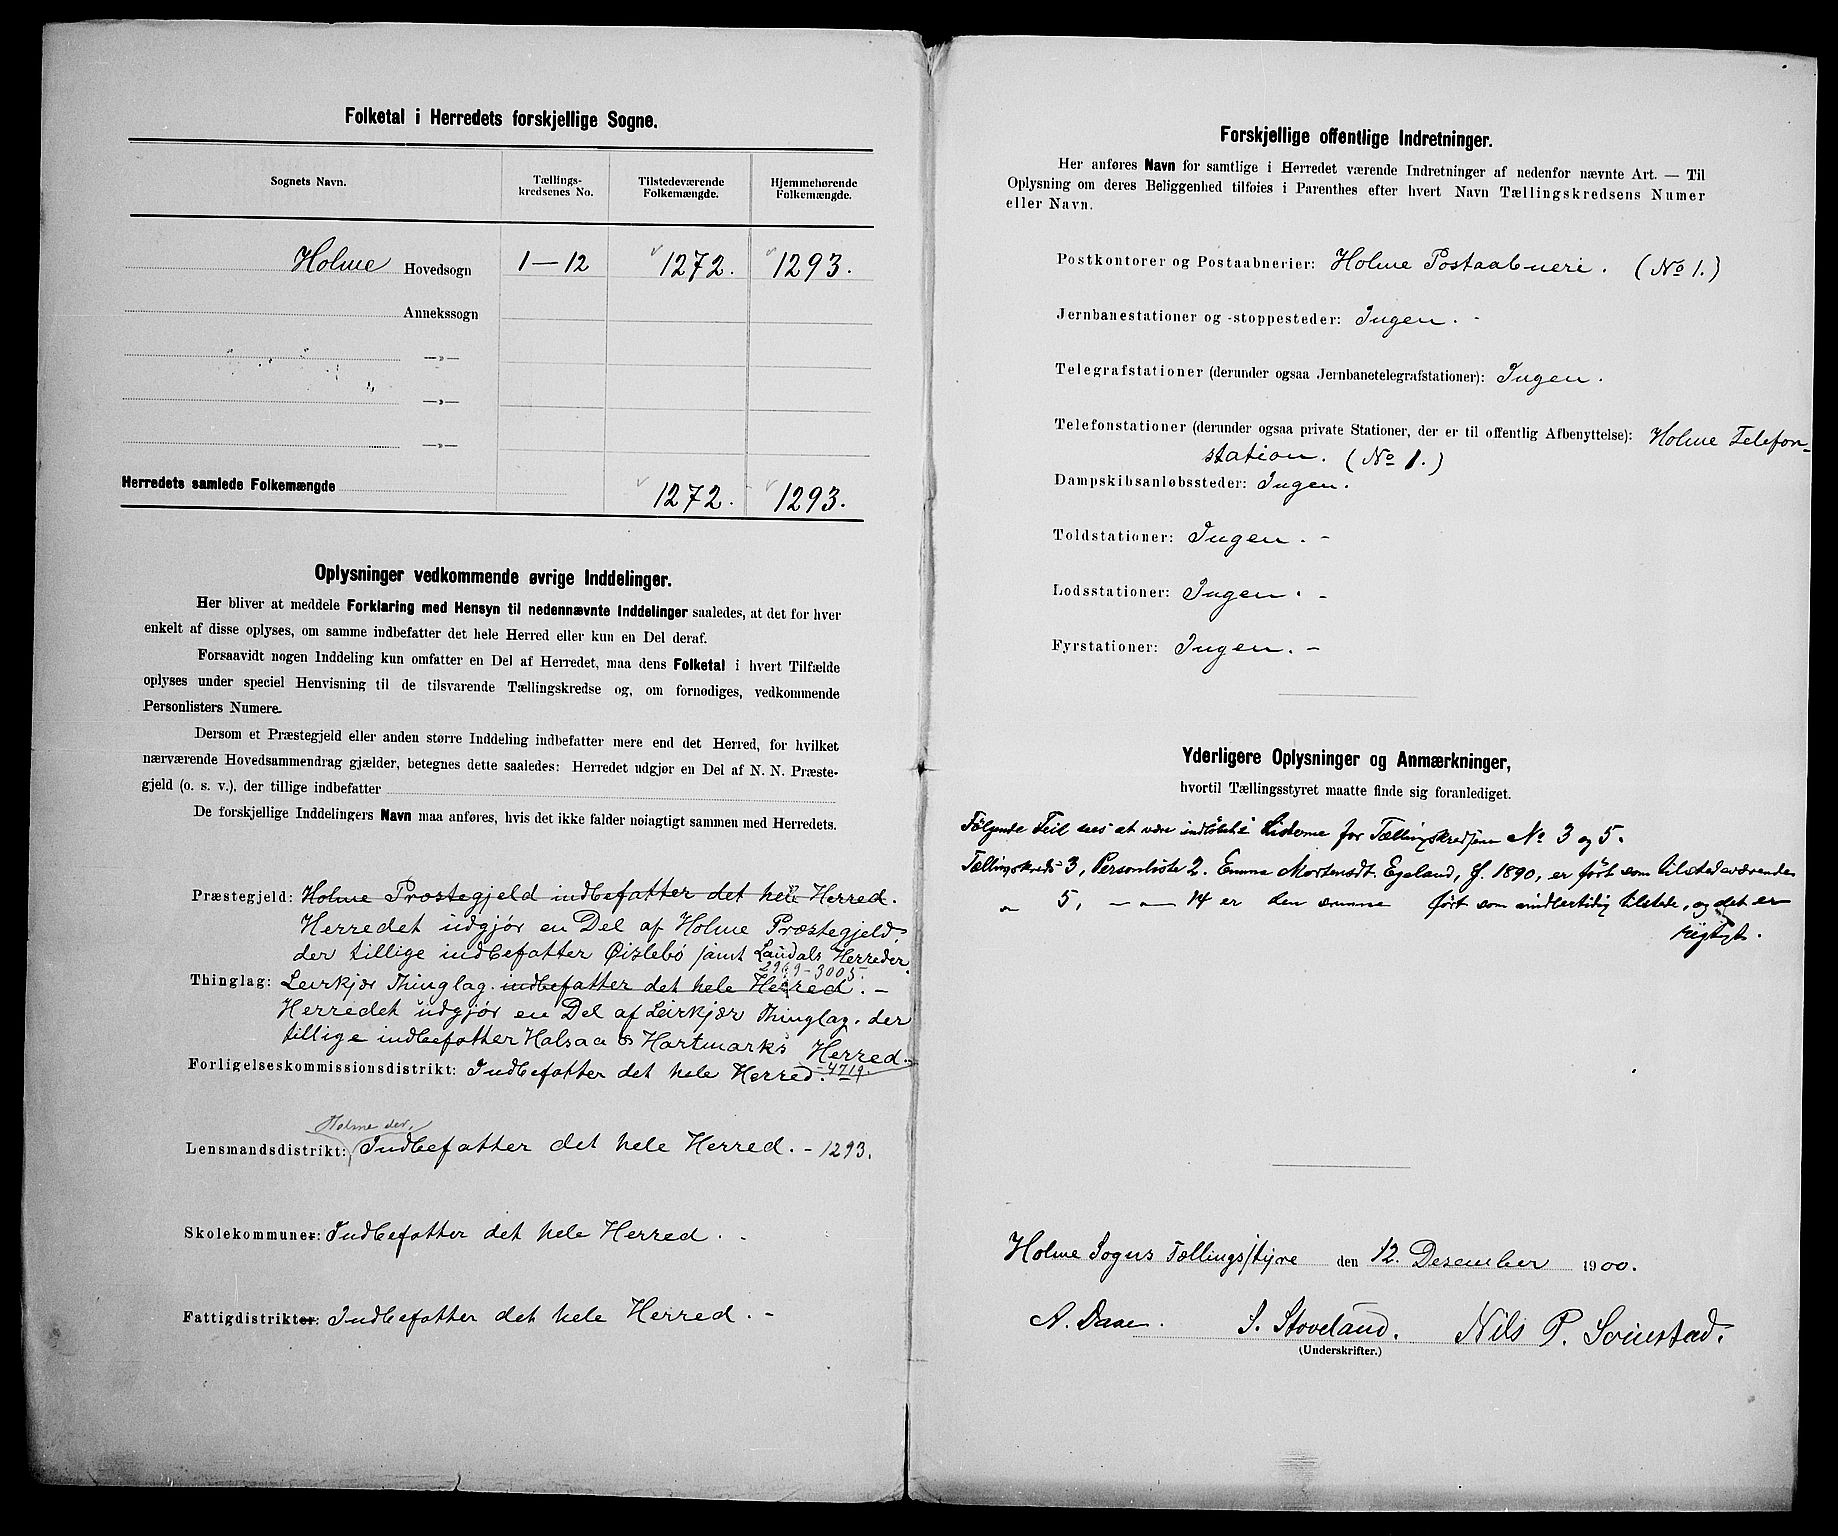 Folketal i Herredets forskjellige Sogne.
Sognets Navn.
Tællings-
kredsenes No.
Tilstedeværende
Folkemængde.
Hjemmehørende
Folkemængde.
Holme Hovedsogn 1—12 1272. 1293.
Annekssogn
—„—
—„—
—„—
Herredets samlede Folkemængde 1272. 1293.
Oplysninger vedkommende øvrige Inddelinger.
Her bliver at meddele Forklaring med Hensyn til nedennævnte Inddelinger saaledes, at det for hver
enkelt af disse oplyses, om samme indbefatter det hele Herred eller kun en Del deraf.
Forsaavidt nogen Inddeling kun omfatter en Del af Herredet, maa dens Folketal i hvert Tilfælde
oplyses under speciel Henvisning til de tilsvarende Tællingskredse og, om fornødiges, vedkommende
Personlisters Numere.
Dersom et Præstegjeld eller anden større Inddeling indbefatter mere end det Herred, for hvilket
nærværende Hovedsammendrag gjælder, betegnes dette saaledes: Herredet udgjør en Del af N. N. Præste-
gjeld (o. s. v.), der tillige indbefatter
De forskjellige Inddelingers Navn maa anføres, hvis det ikke falder nøiagtigt sammen med Herredets.
Præstegjeld: Holme Præstegjeld indbefatter det hele Herred.
Herredet udgjør en Del af Holme Præstegjeld,
der tillige indbefatter Øislebø samt Laudals Herreder.
2969-3005.
Thinglag: Leirkjær Thinglag. indbefatter det hele Herred. —
Herredet udgjør en Del af Leirkjær Thinglag. der
tillige indbefatter Halsaa & Hartmarks Herred.
Forligelseskommissionsdistrikt: Indbefatter det hele Herred. -4719.
Holme der,
Lensmandsdistrikt: Indbefatter det hele Herred. - 1293.
Skolekommuner: Indbefatter det hele Herred. -
Fattigdistrikter: Indbefatter det hele Herred. -
Forskjellige offentlige Indretninger.
Her anføres Navn for samtlige i Herredet værende Indretninger af nedenfor nævnte Art. — Til
Oplysning om deres Beliggenhed tilføies i Parenthes efter hvert Navn Tællingskredsens Numer
eller Navn.
Postkontorer og Postaabnerier: Holme Postaabneri. (No 1.)
Jernbanestationer og -stoppesteder: Ingen. -
Telegrafstationer (derunder ogsaa Jernbanetelegrafstationer): Ingen.
Telefonstationer (derunder ogsaa private Stationer, der er til offentlig Afbenyttelse): Holme Telefon-
station. (No 1.)
Dampskibsanløbssteder: Ingen.
Toldstationer: Ingen. -
Lodsstationer: Ingen. -
Fyrstationer: Ingen. -
Yderligere Oplysninger og Anmærkninger,
hvortil Tællingsstyret maatte finde sig foranlediget.
Følgende Feil sees at være indløbet i Listerne for Tællingskredsene No 3 og 5.
Tællingskreds 3, Personliste 2. Emma Mortensdt. Egeland, f. 1890, er ført som tilstedeværende
" 5, — " — 14 er den samme ført som midlertidig tilstede, og det er
rigtigt.
Holme Sogns Tællingsstyre den 12. Desember 1900.
A. Daae. S. Stoveland. Nils P.
(Underskrifter.)